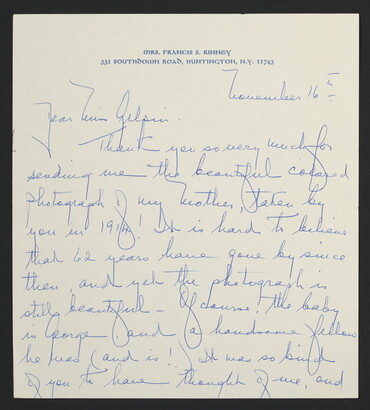 MRS. FRANCIS S. KINNEY
331 SOUTHDOWN ROAD, HUNTINGTON, N.Y. 11743
November 16th
Dear Miss Gilpin.
Thank you so very much for
sending me the beautiful colored
photograph of my Mother, taken by
you in 1914! It is hard to believe
that 62 years have gone by since
then, and yet the photograph is
still beautiful - Of course, the baby
is George and a handsome fellow
he was (and is!) It was so kind
of you to have thought of me, and